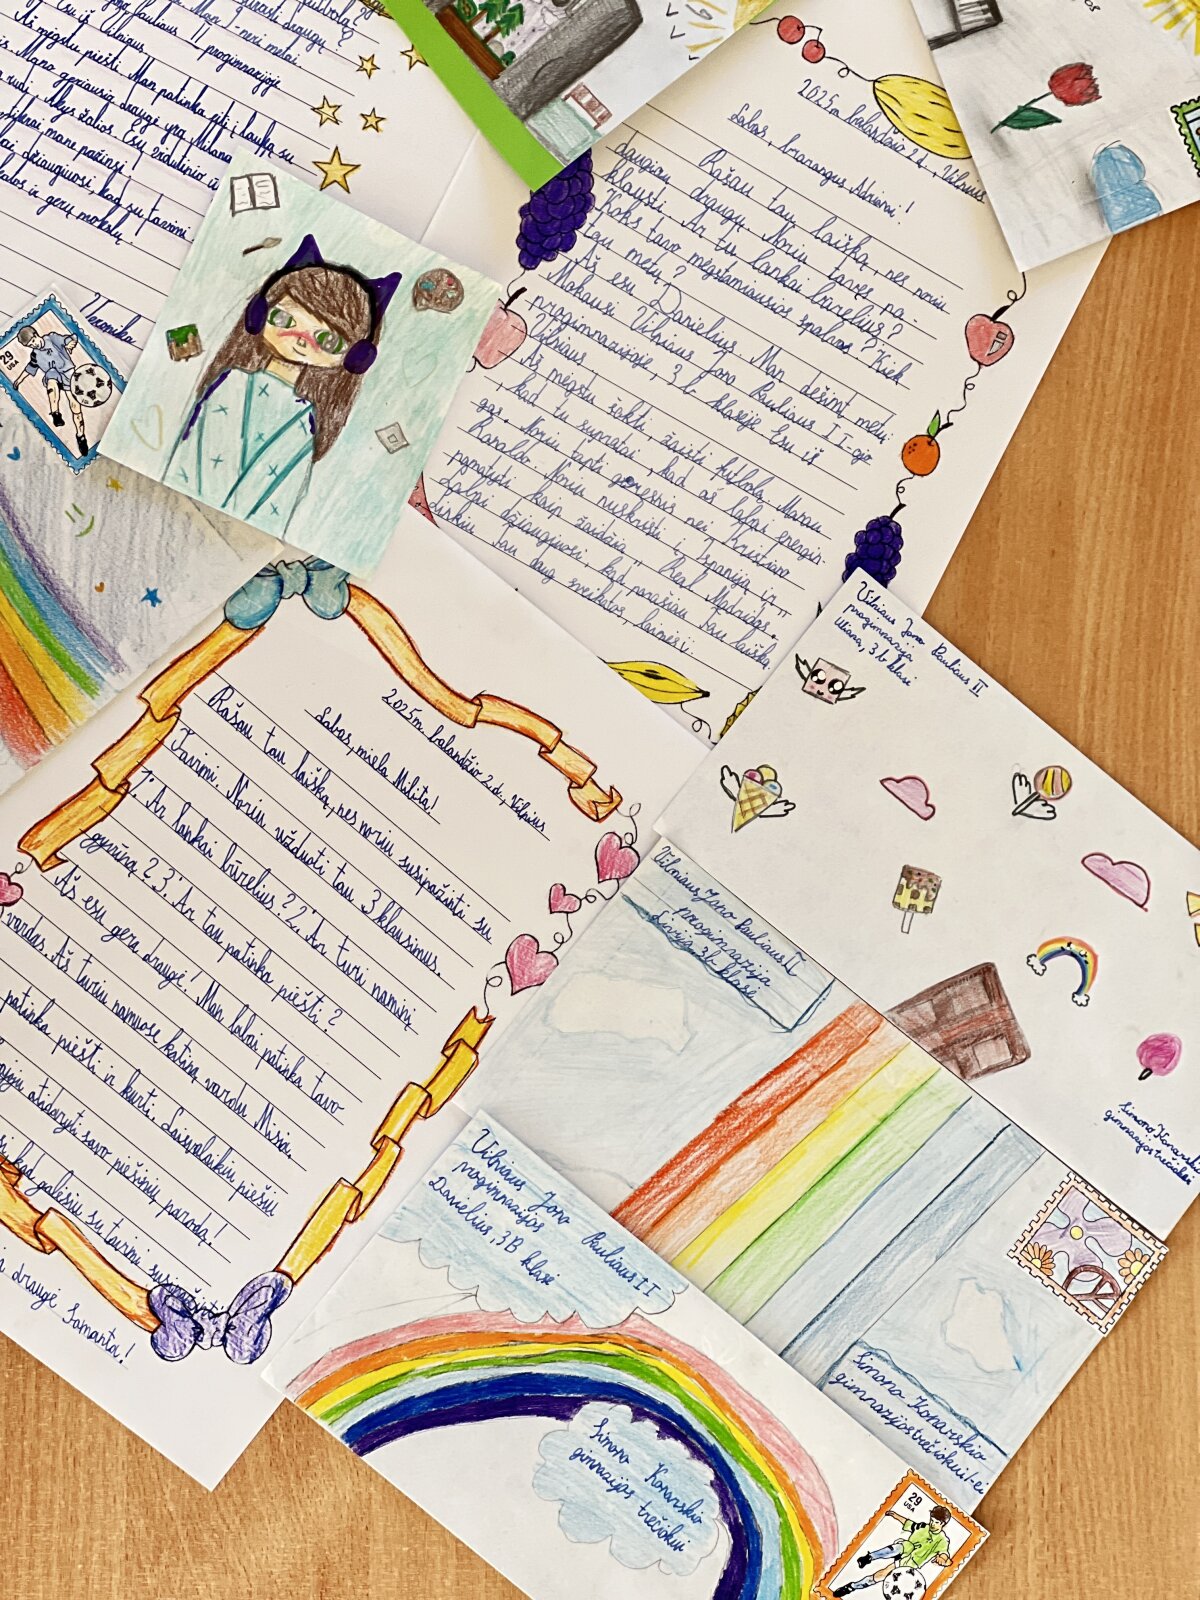 Esu iš Vilniaus
Aš mėgstu piešti. Man patinka eiti į lauką su
Mano geriausia draugė yra Milana
rudi. Akys žalios. Esu vidutinio ū
mane pažinsi!
džiaugiuosi, kad su tavimi
ir gerų mokslų.
Veronika
29
USA
2025m. balandžio 2d., Vilnius
Labas, brangus Adrieni!
Rašau tau laišką, nes noriu
daugiau draugų. Noriu tavęs pa-
klausti. Ar tu lankai būrelius?
Koks tavo mėgstamiausios spalvos? Kiek
tau metų?
Aš esu Danielius. Man dešimt metų.
Mokausi Vilniaus Jono Pauliaus II-oje
progimnazijoje, 3b klasėje. Esu iš
Vilniaus.
Aš mėgstu šokti, žaisti futbolą. Manau
, kad tu supratai, kad aš labai energin-
gas. Noriu tapti geresnis nei Kristiano
Ronaldo. Noriu nuskristi į Ispaniją ir
pamatyti kaip žaidžia "Real Madridas".
Labai džiaugiuosi, kad parašiau tau laišką.
Linkiu tau daug sveikatos, laimės
2025m. balandžio 2d., Vilnius
Labas, miela Milita!
Rašau tau laišką, nes noriu susipažinti su
Tavimi. Noriu užduoti tau 3 klausimus.
1. Ar lankai būrelius? 2. Ar turi naminį
gyvūną? 3. Ar tau patinka piešti?
Aš esu gera draugė! Man labai patinka tavo
vardas. Aš turiu namuose katiną vardu Misia.
patinka piešti ir kurti. Laisvalaikiu piešiu
atidaryti savo piešinių parodą!
kad galėsiu su tavimi susipažinti
draugė Samanta!
Vilniaus Jono Pauliaus II
progimnazija
3b klasė
Simono Konarskio
gimnazijos trečiokei
Vilniaus Jono Pauliaus II
progimnazija
Livija 3b klasė
Simono Konarskio
gimnazijos trečiokui/-ei
Vilniaus Jono Pauliaus II
progimnazijos
Danielius, 3B klasė
Simono Konarskio
gimnazijos trečiokui
29
USA